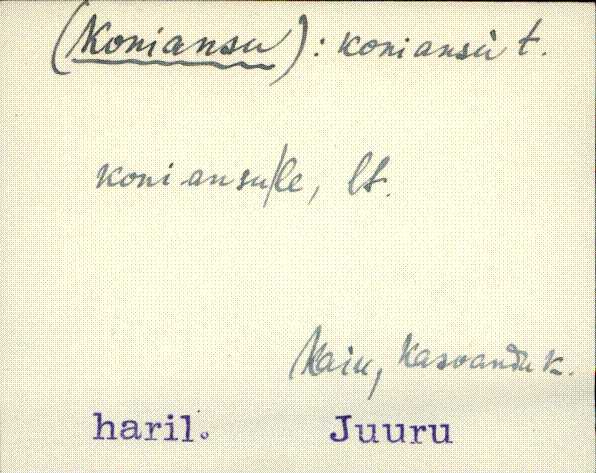 (Koniansu): koniansù t.
koniansu/le, lt.
Kaiu, Kasvandu k.
haril. Juuru